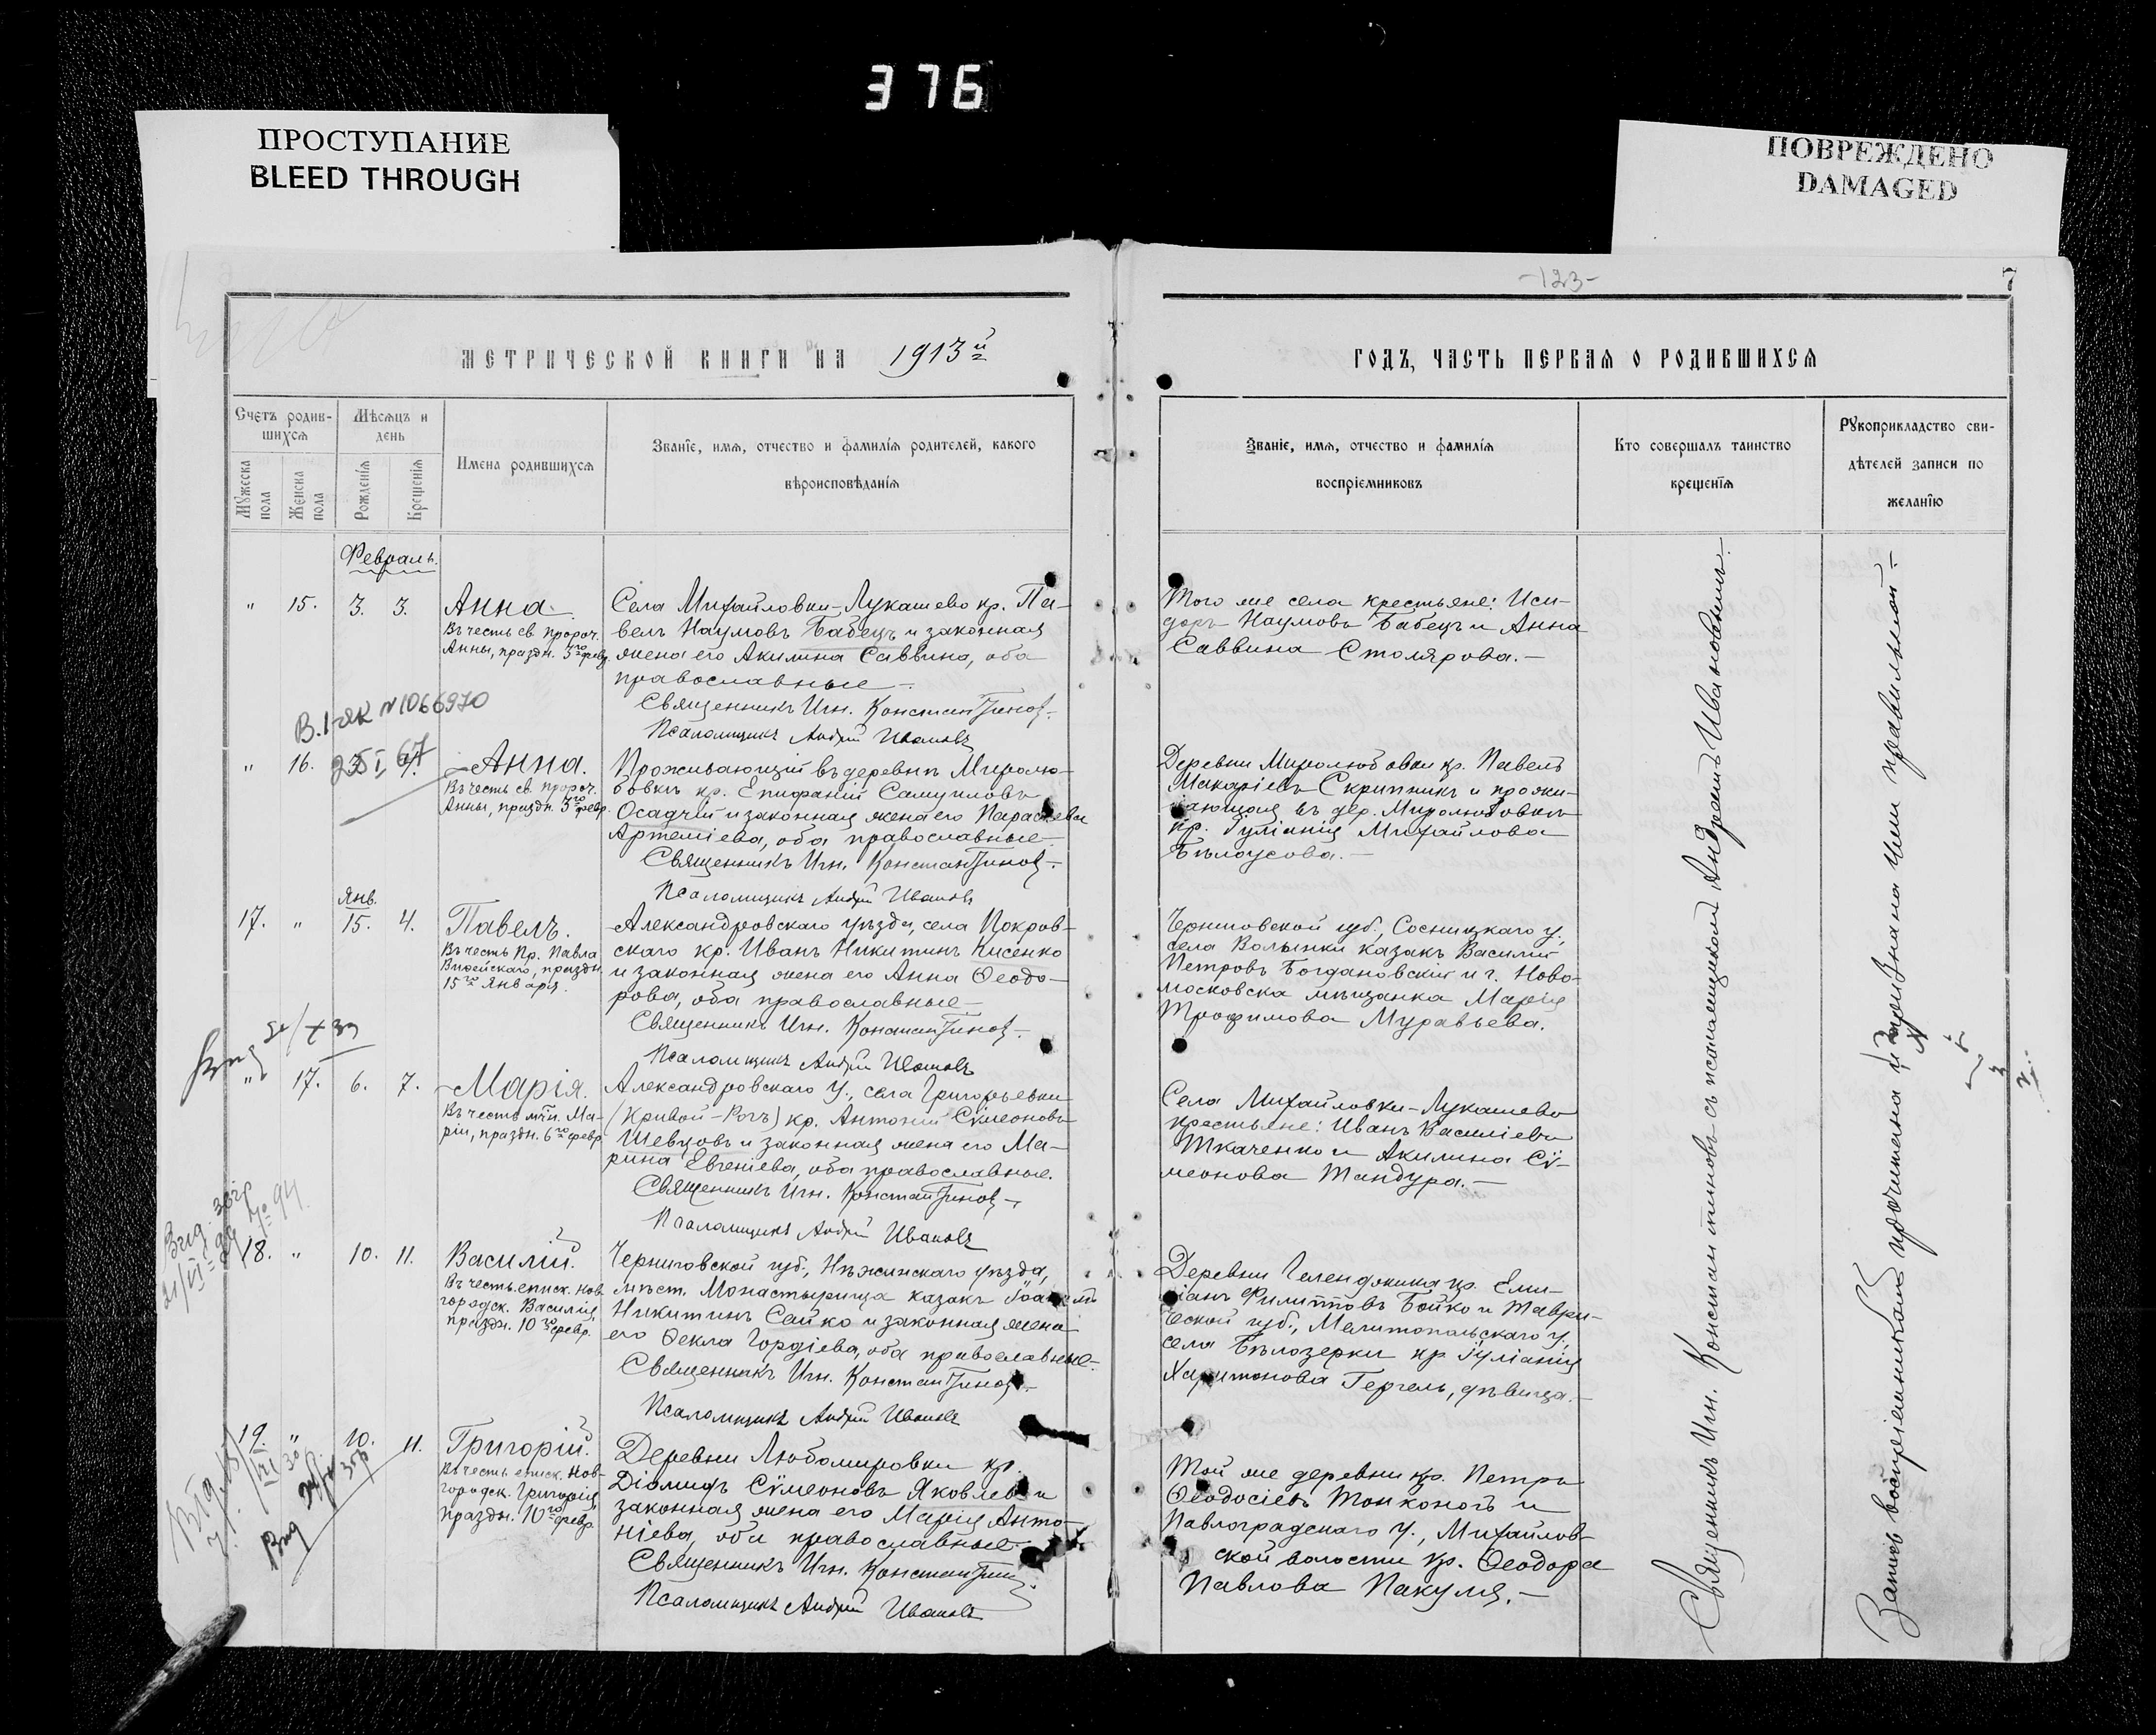 376
ПРОСТУПАНИЕ
BLEED THROUGH
ПОВРЕЖДЕНО
DAMAGED
-123-
7
МЕТРИЧЕСКОЙ КНИГИ НА 1913й
ГОДЪ, ЧАСТЬ ПЕРВАЯ О РОДИВШИХСЯ
Счетъ родив-
шихся
Мужеска
пола
Женска
пола
Мѣсяцъ и
день
Рожденія
Крещенія
Имена родившихся
Званіе, имя, отчество и фамилія родителей, какого
вѣроисповѣданія
Званіе, имя, отчество и фамилія
воспріемниковъ
Кто совершалъ таинство
крещенія
Рукоприкладство сви-
дѣтелей записи по
желанію
Февраль.
" 15. 3. 3.
Анна.
Въ честь св. пророч.
Анны, праздн. 3го февр.
Села Михайловки-Лукашево кр. Па-
велъ Наумовъ Бабецъ и законная
жена его Акилина Саввина, оба
православные.
Священникъ Игн. Константиновъ.
Псаломщикъ Андрей Ивановъ
Того же села крестьяне: Иси-
доръ Наумовъ Бабецъ и Анна
Саввина Столярова.-
N 1066970
25 I 67
" 16.
Анна.
Въ честь св. пророч.
Анны, праздн. 3го февр.
Проживающій въ деревнѣ Миролю-
бовкѣ кр. Епифаній Самуиловъ
Осадчій и законная жена его Параскева
Артеміева, оба православные.
Священникъ Игн. Константиновъ.
Псаломщикъ Андрей Ивановъ
Деревни Миролюбовки кр. Павелъ
Макаріевъ Скрипникъ и прожи-
вающая въ дер. Миролюбовкѣ
кр. Іуліанія Михайлова
Бѣлоусова.-
Янв.
17. " 15. 4.
Павелъ.
Въ честь Пр. Павла
Фивейскаго, праздн.
15го Января.
Александровскаго уѣзда, села Покров-
скаго кр. Иванъ Никитинъ Кисенко
и законная жена его Анна Ѳеодо-
рова, оба православные-
Священникъ Игн. Константиновъ.
Псаломщикъ Андрей Ивановъ
Черниговской губ., Сосницкаго у.,
села Волынки казакъ Василій
Петровъ Богдановскій и г. Ново-
московска мѣщанка Марія
Трофимова Муравьева.
" 17. 6. 7.
Марія.
Въ честь мчн. Ма-
ріи, праздн. 6го февр.
Александровскаго у., села Григорьевки
(Кривой-Рогъ) кр. Антоній Сѵмеоновъ
Шевцовъ и законная жена его Ма-
рина Евгеніева, оба православные.
Священникъ Игн. Константиновъ-
Псаломщикъ Андрей Ивановъ
Села Михайловки-Лукашево
крестьяне: Иванъ Василіевъ
Ткаченко и Акилина Сѵ-
меонова Тандура.-
18. " 10. 11.
Василій.
Въ честь еписк. Нов-
городск. Василія,
праздн. 10го февр.
Черниговской губ., Нѣжинскаго уѣзда,
мѣст. Монастырища казакъ
Никитинъ Сайко и законная жена
его Ѳекла Гордіева, оба православные-
Священникъ Игн. Константиновъ-
Псаломщикъ Андрей Ивановъ
Деревни Геленджика кр. Еми-
ліанъ Филипповъ Бойко и Таври-
ческой губ., Мелитопольскаго у.,
села Бѣлозерки кр Іуліанія
Харитонова Гергель, дѣвица.-
19. " 10. 11.
Григорій.
Въ честь еписк. Нов-
городск. Григорія,
праздн. 10го февр.
Деревни Любомировки кр.
Діомидъ Сѵмеоновъ Яковлевъ и
законная жена его Марія Анто-
ніева, оба православные-
Священникъ Игн. Константиновъ
Псаломщикъ Андрей Ивановъ
Той же деревни кр. Петръ
Ѳеодосіевъ Тонконогъ и
Павлоградскаго у., Михайлов-
ской волости кр. Ѳеодора
Павлова Пакуля.-
Священникъ Игн. Константиновъ съ псаломщикомъ Андреемъ Ивановымъ.
Запись воспріемниками прочитана и признана ими правильной-